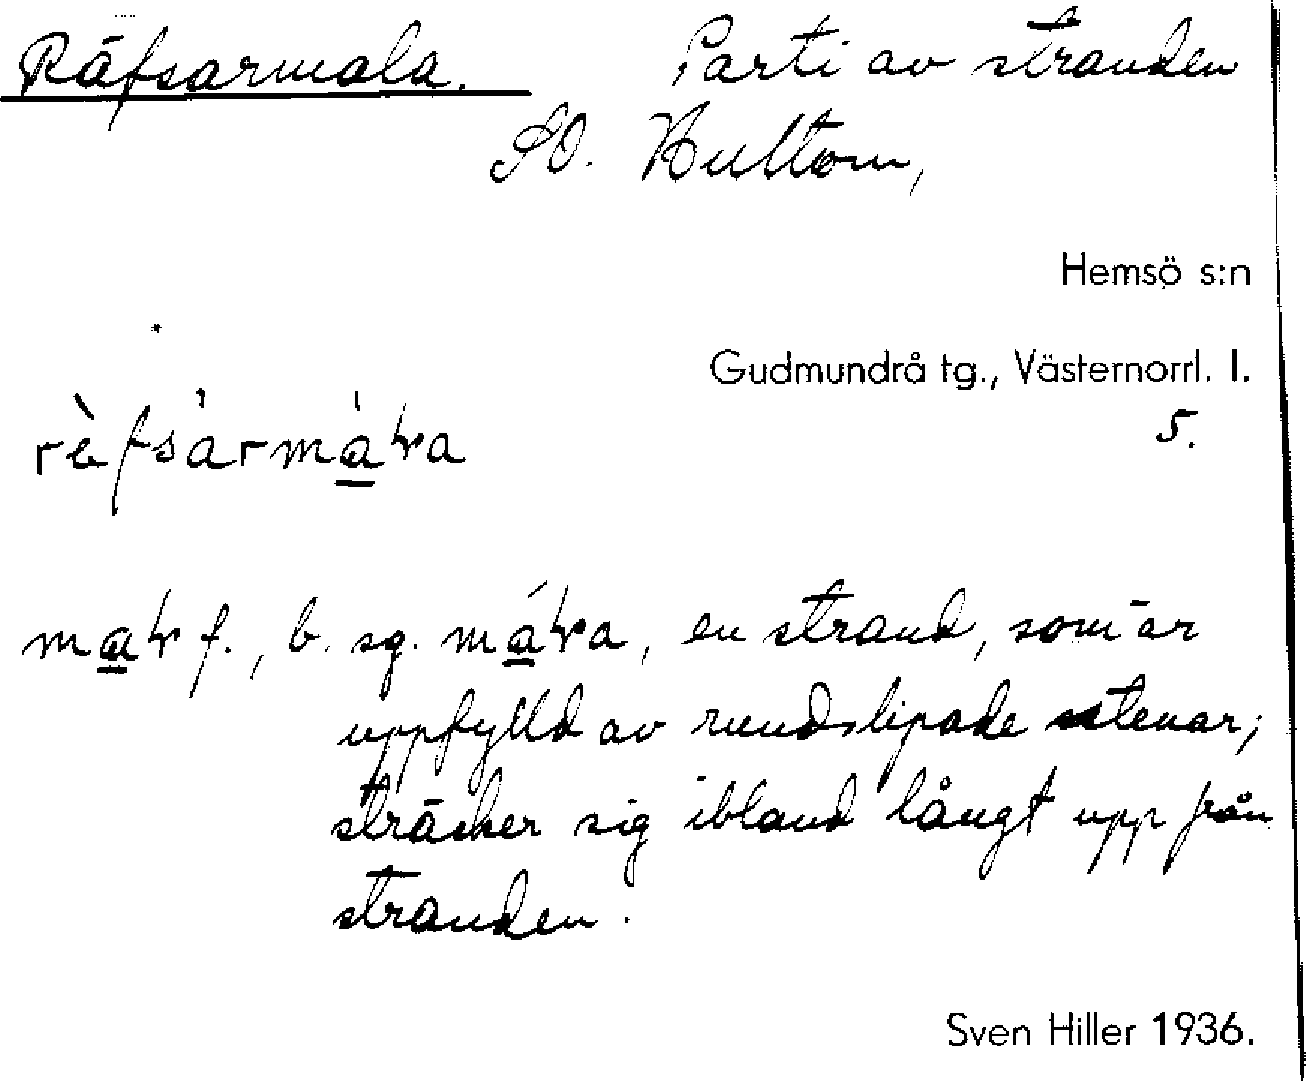 Räfsarmala. Parti av stranden
SO. Hultom,
Hemsö s:n
Gudmundrå tg., Västernorrl. l.
5.
f., b. sg. , en strand, som är
uppfylld av rundslipade stenar;
sträcker sig ibland långt upp från
stranden.
Sven Hiller 1936.